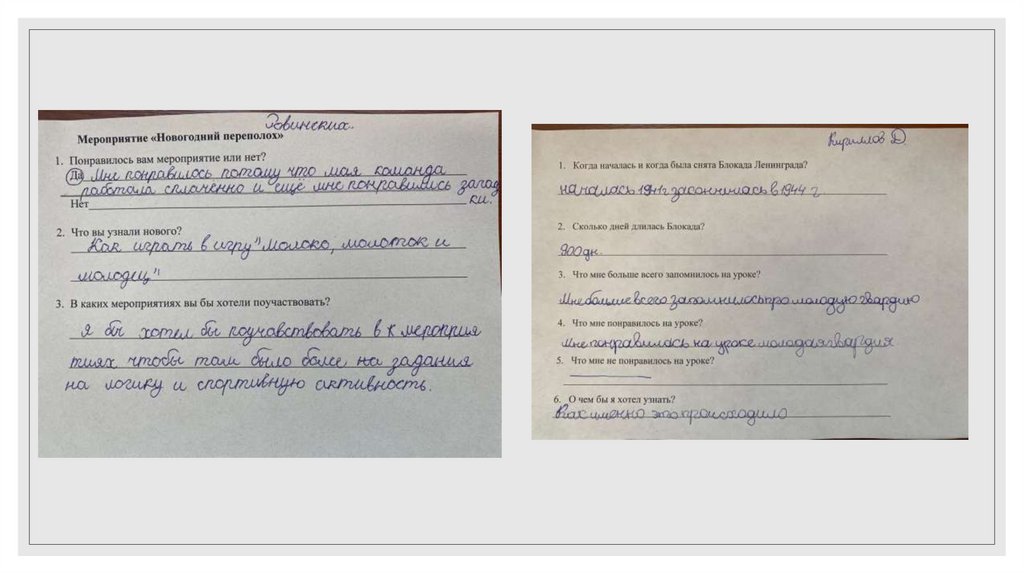 Ровинских.
Мероприятие «Новогодний переполох»
1. Понравилось вам мероприятие или нет?
Да Мне понравилось потому что моя команда
работала сплаченно и ещё мне понравились загад
ки.
Нет
2. Что вы узнали нового?
Как играть в игру "молоко, молоток и
молодец"
3. В каких мероприятиях вы бы хотели поучаствовать?
Я бы хотел бы поучавствовать в к мероприя
тиях чтобы там было более на задания
на логику и спортивную активность.
Кириллов Д.
1. Когда началась и когда была снята Блокада Ленинграда?
началась 1941г закончилась в 1944 г.
2. Сколько дней длилась Блокада?
900 дн.
3. Что мне больше всего запомнилось на уроке?
Мне больше всего запомнилось про молодую гвардию
4. Что мне понравилось на уроке?
Мне понравилась на уроке молодая гвардия
5. Что мне не понравилось на уроке?
6. О чем бы я хотел узнать?
Как именно это происходило